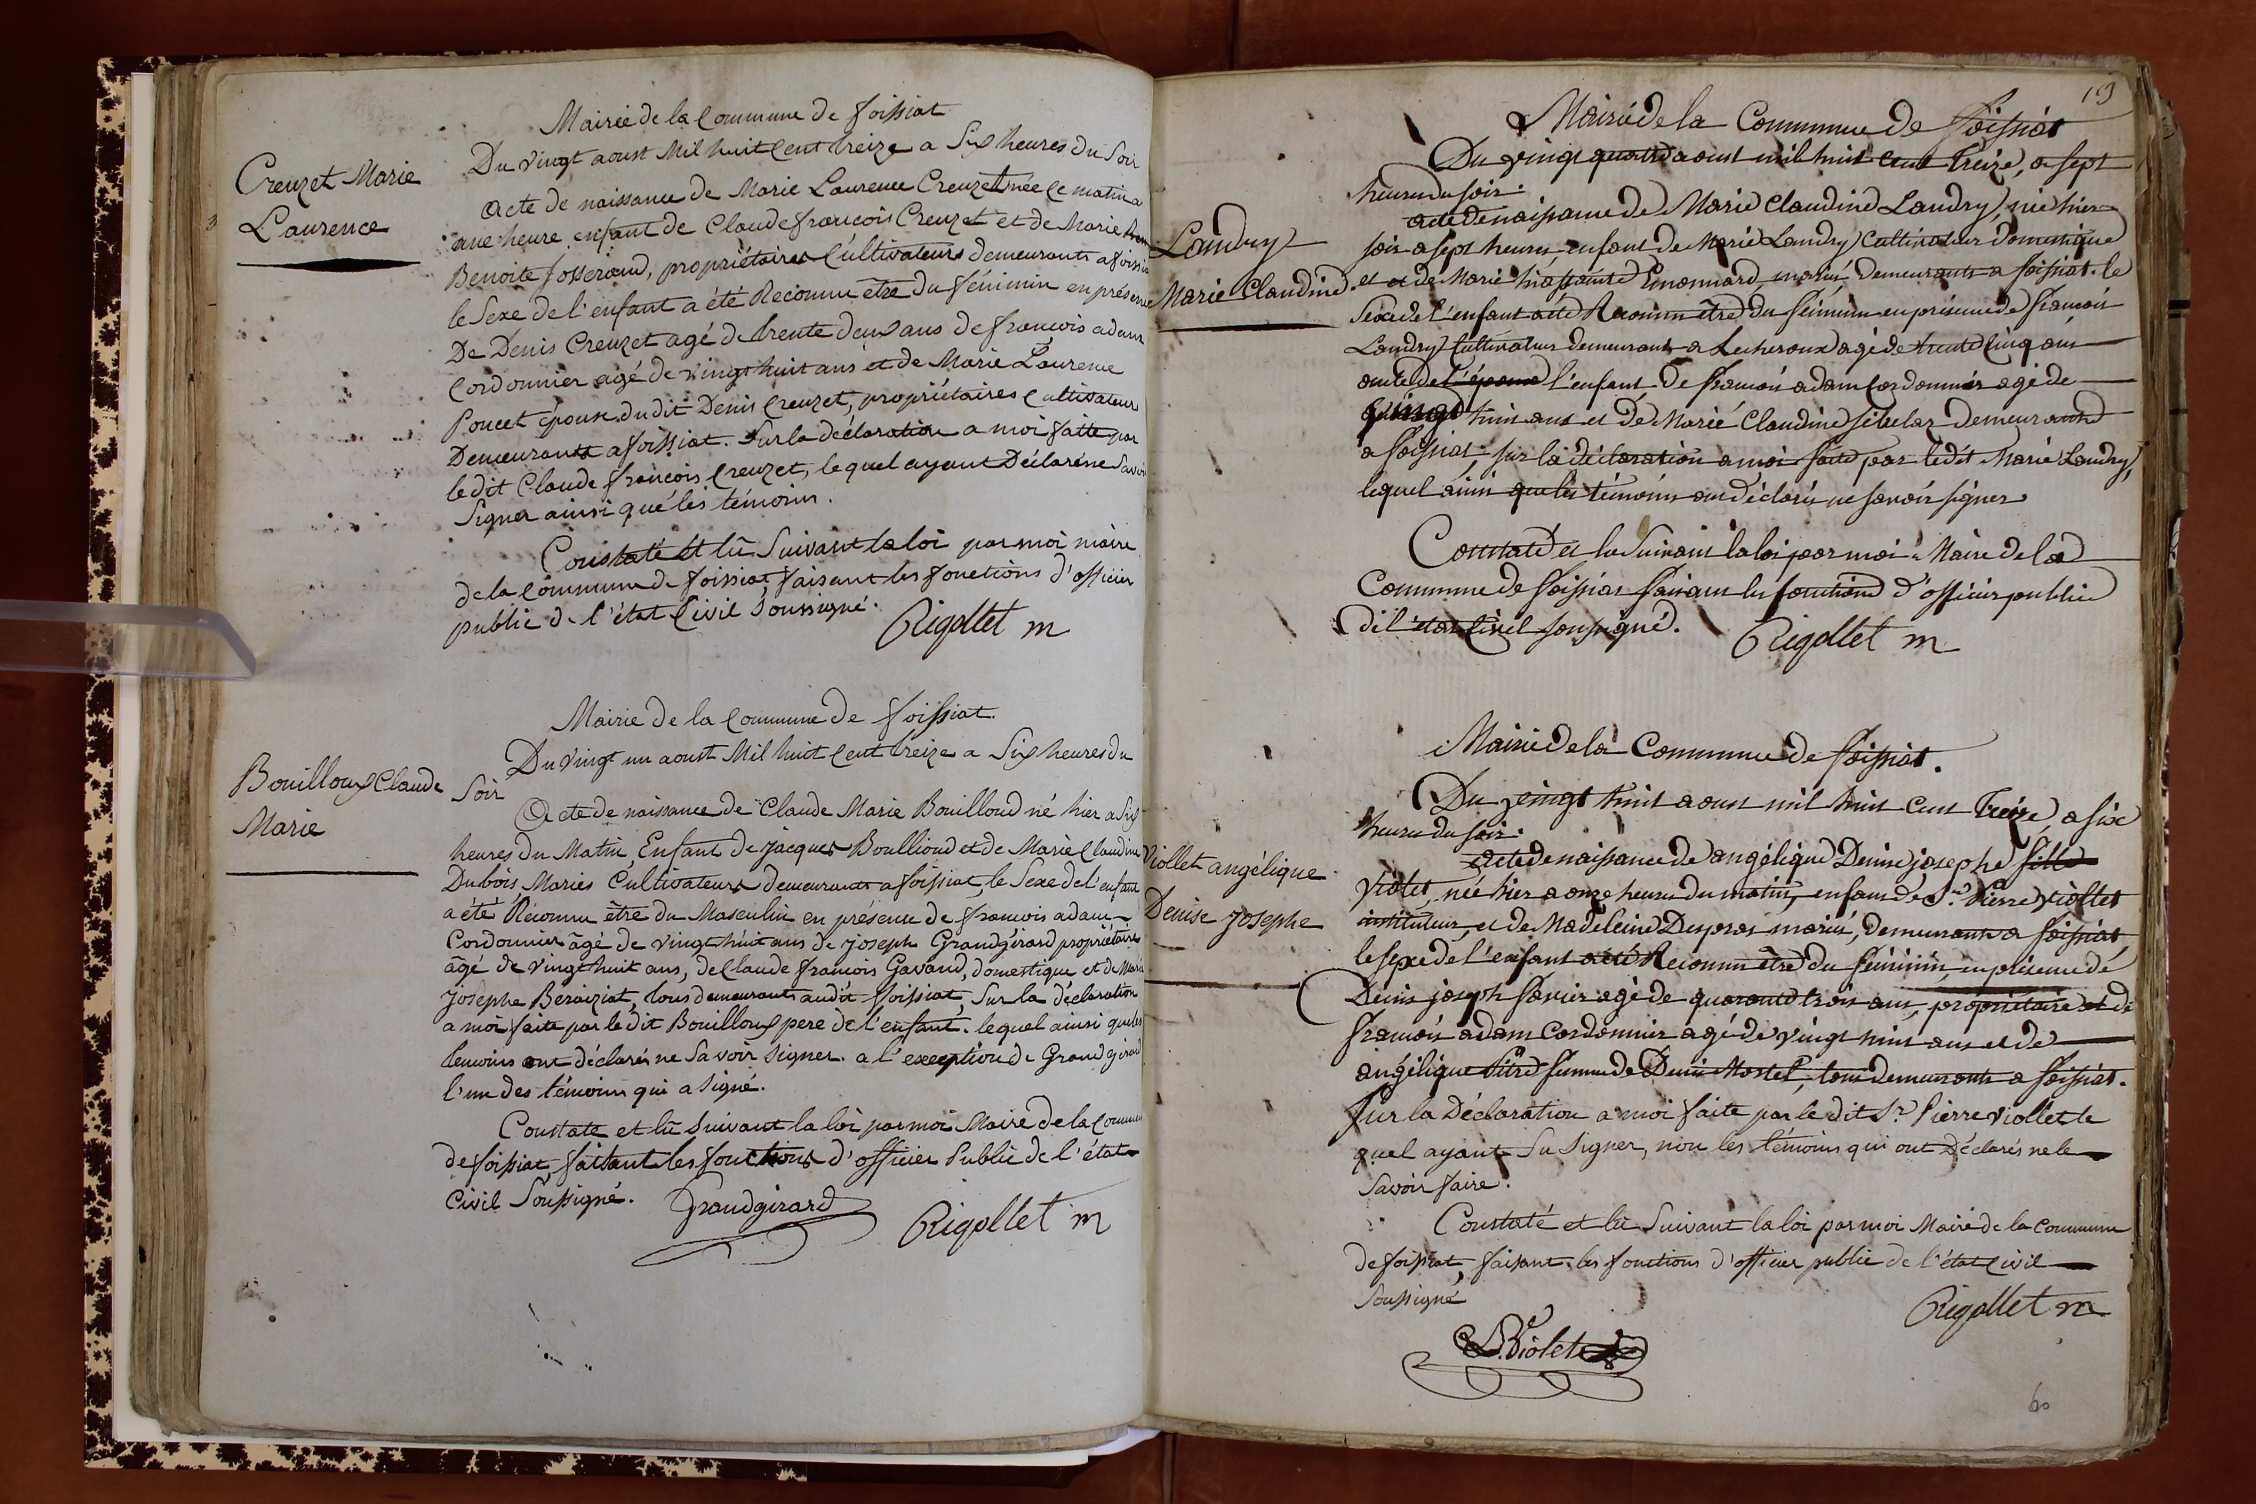 Mairie de la Commune de foissiat
Du vingt aoust Mil huit Cent treize a Six heures du Soir
Creuzet Marie
Laurence
Acte de naissance de Marie Laurence Creuzet née ce matin a
une heure enfant de Claude françois Creuzet et de Marie
Benoite Josserand, propriétaires Cultivateurs demeurants a foissiat
le Sexe de l'enfant a été Reconnu être du féminin en présence
De Denis Creuzet agé de trente deux ans de françois adam
Cordonnier agé de vingt huit ans et de Marie Laurence
Poncet épouse dudit Denis Creuzet, propriétaires Cultivateurs
Demeurants a foissiat. Sur la déclaration a moi faite par
ledit Claude françois Creuzet, lequel ayant Déclaré ne Savoir
Signer ainsi que les témoins.
Constaté et lû Suivant la loi par moi maire
de la Commune de foissiat faisant les fonctions d'officier
public de l'état Civil Soussigné. Rigollet m
Mairie de la Commune de foissiat.
Du vingt un aoust Mil huit Cent treize a Six heures du
Soir
Bouilloux Claude
Marie
Acte de naissance de Claude Marie Bouilloud né hier a Six
heures du Matin Enfant de Jacques Boullioud et de Marie Claudine
Dubois Mariés Cultivateurs demeurants a foissiat, le Sexe de l'enfant
a été Reconnu être du Masculin en présence de françois adam
Cordonnier âgé de vingt huit ans de joseph Grandgirard propriétaire
âgé de vingt huit ans, de Claude françois Gavand, domestique et de Marie
Josephe Beraiziat, tous demeurants audit foissiat, Sur la déclaration
a moi faite par le dit Bouilloux pere de l'enfant. lequel ainsi que les
temoins ont déclarés ne Savoir Signer. a l'exeeption de Grandgirard
l'un des témoins qui a Signé.
Constate et lû Suivant la loi par moi Maire de la Commune
de foissiat, faisant les fonctions d'officier Public de l'état
Civil Soussigné. Grandgirard Rigollet m
19
Mairie de la Commune de Foissiat
Du vingt quatre aoust mil huit cent treize, a sept
heures du soir.
Landry
Marie Claudine
acte de naissance de Marie Claudine Landry, née hier
soir a sept heures, enfant de Marie Landry Cultivateur domestique
et et de Marie hiassainte Emonnard, mariés, demeurants a foissiat. le
Sexe de l'enfant a été Reconnu être du féminin en présence de françois
Landry Cultivateur demeurant a Lescheroux agé de trente cinq ans
oncle de l'enfant De françois adam Cordonnier agé de
vingt huit ans et de Marie Claudine demeurants
a foissiat. sur la déclaration a moi faite par ledit Marie Landry,
lequel ainsi que les témoins ont déclarés ne savoir signer
Constaté et lu Suivant la loi par moi Maire de la
Commune de foissiat faisant les fonctions d'officier public
de l'état Civil soussigné. Rigollet m
Mairie de la Commune de foissiat.
Du vingt huit aoust mil huit cent treize, a six
heures du soir.
Viollet angélique
Denise Josephe
acte de naissance de angélique Denise josephe fille
Violet, née hier a onze heures du matin, enfant de Sr. Pierre Viollet
instituteur, et de Madeleine Despras mariés, demeurants a foissiat
le sexe de l'enfant a été Reconnu être du féminin, en présence de
Denis joseph favier agé de quarante trois ans, propriétaire et de
françois adam Cordonnier agé de vingt huit ans et de
angélique femme de Denis Mortel, tous demeurants a foissiat.
Sur la Déclaration a moi faite par le dit Sr. Pierre Viollet le
quel ayant Su Signer, non les témoins qui ont Déclarés ne le
Savoir faire.
Constaté et lû Suivant la loi par moi Maire de la Commune
de foissiat, faisant les fonctions d'officier public de l'état Civil
Soussigné
Rigollet m
Violet
60